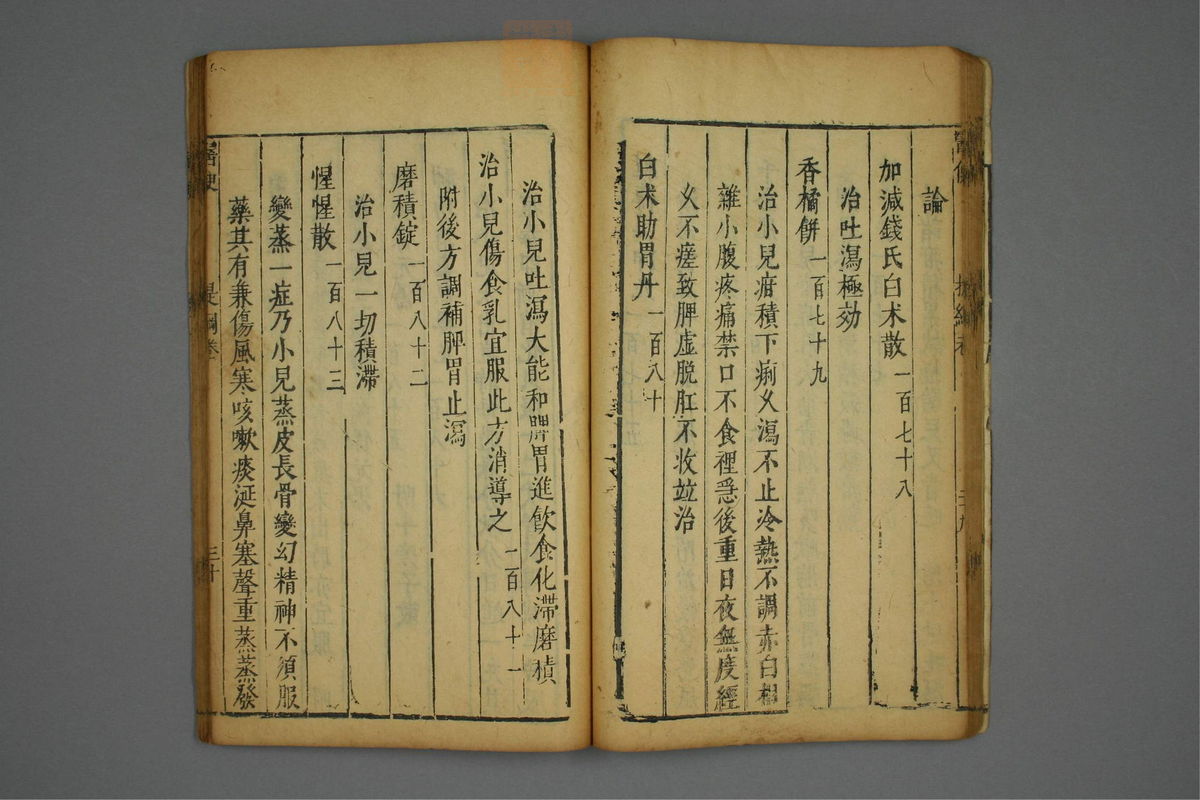 論
加減錢氏白术散一百七十八
治吐瀉極効
香橘餅一百七十九
治小兒疳積下痢乆瀉不止冷熱不調赤白相
雜小腹疼痛禁口不食裡急後重日夜無度經
乆不瘥致脾虛脫肛不收竝治
白术助胃丹一百八十
治小兒吐瀉大能和脾胃進飲食化滯磨積
治小兒傷食乳宜服此方消導之一百八十一
附後方調補脾胃止瀉
磨積錠一百八十二
治小兒一切積滯
惺惺散一百八十三
變蒸一症乃小兒蒸皮長骨變幻精神不須服
藥其有兼傷風寒咳嗽痰涎鼻塞聲重蒸蒸發
提綱卷 三十